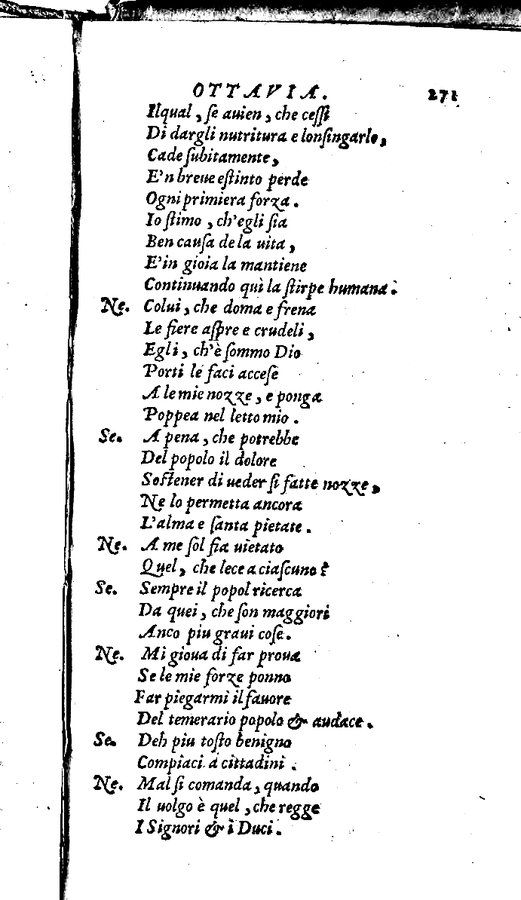 OTTAVIA. 271
Ilqual, ſe auien, che ceſſi
Di dargli nutritura e lonſingarlo,
Cade ſubitamente,
E'n breue eſtinto perde
Ogni primiera forza.
Io ſtimo, ch'egli ſia
Ben cauſa de la uita,
E'in gioia la mantiene
Continuando quì la ſtirpe humana.
Ne. Colui, che doma e frena
Le fiere aſpre e crudeli,
Egli, ch'è ſommo Dio
Porti le faci acceſe
A le mie nozze, e ponga
Poppea nel letto mio.
Se. A pena, che potrebbe
Del popolo il dolore
Soſtener di ueder ſi fatte nozze,
Ne lo permetta ancora
L'alma e ſanta pietate.
Ne. A me ſol fia uietato
Quel, che lece a ciaſcuno?
Se. Sempre il popol ricerca
Da quei, che ſon maggiori
Anco piu graui coſe.
Ne. Mi gioua di far proua
Se le mie forze ponno
Far piegarmi il fauore
Del temerario popolo & audace.
Se. Deh piu toſto benigno
Compiaci a cittadini.
Ne. Mal ſi comanda, quando
Il uolgo è quel, che regge
I Signori & i Duci.